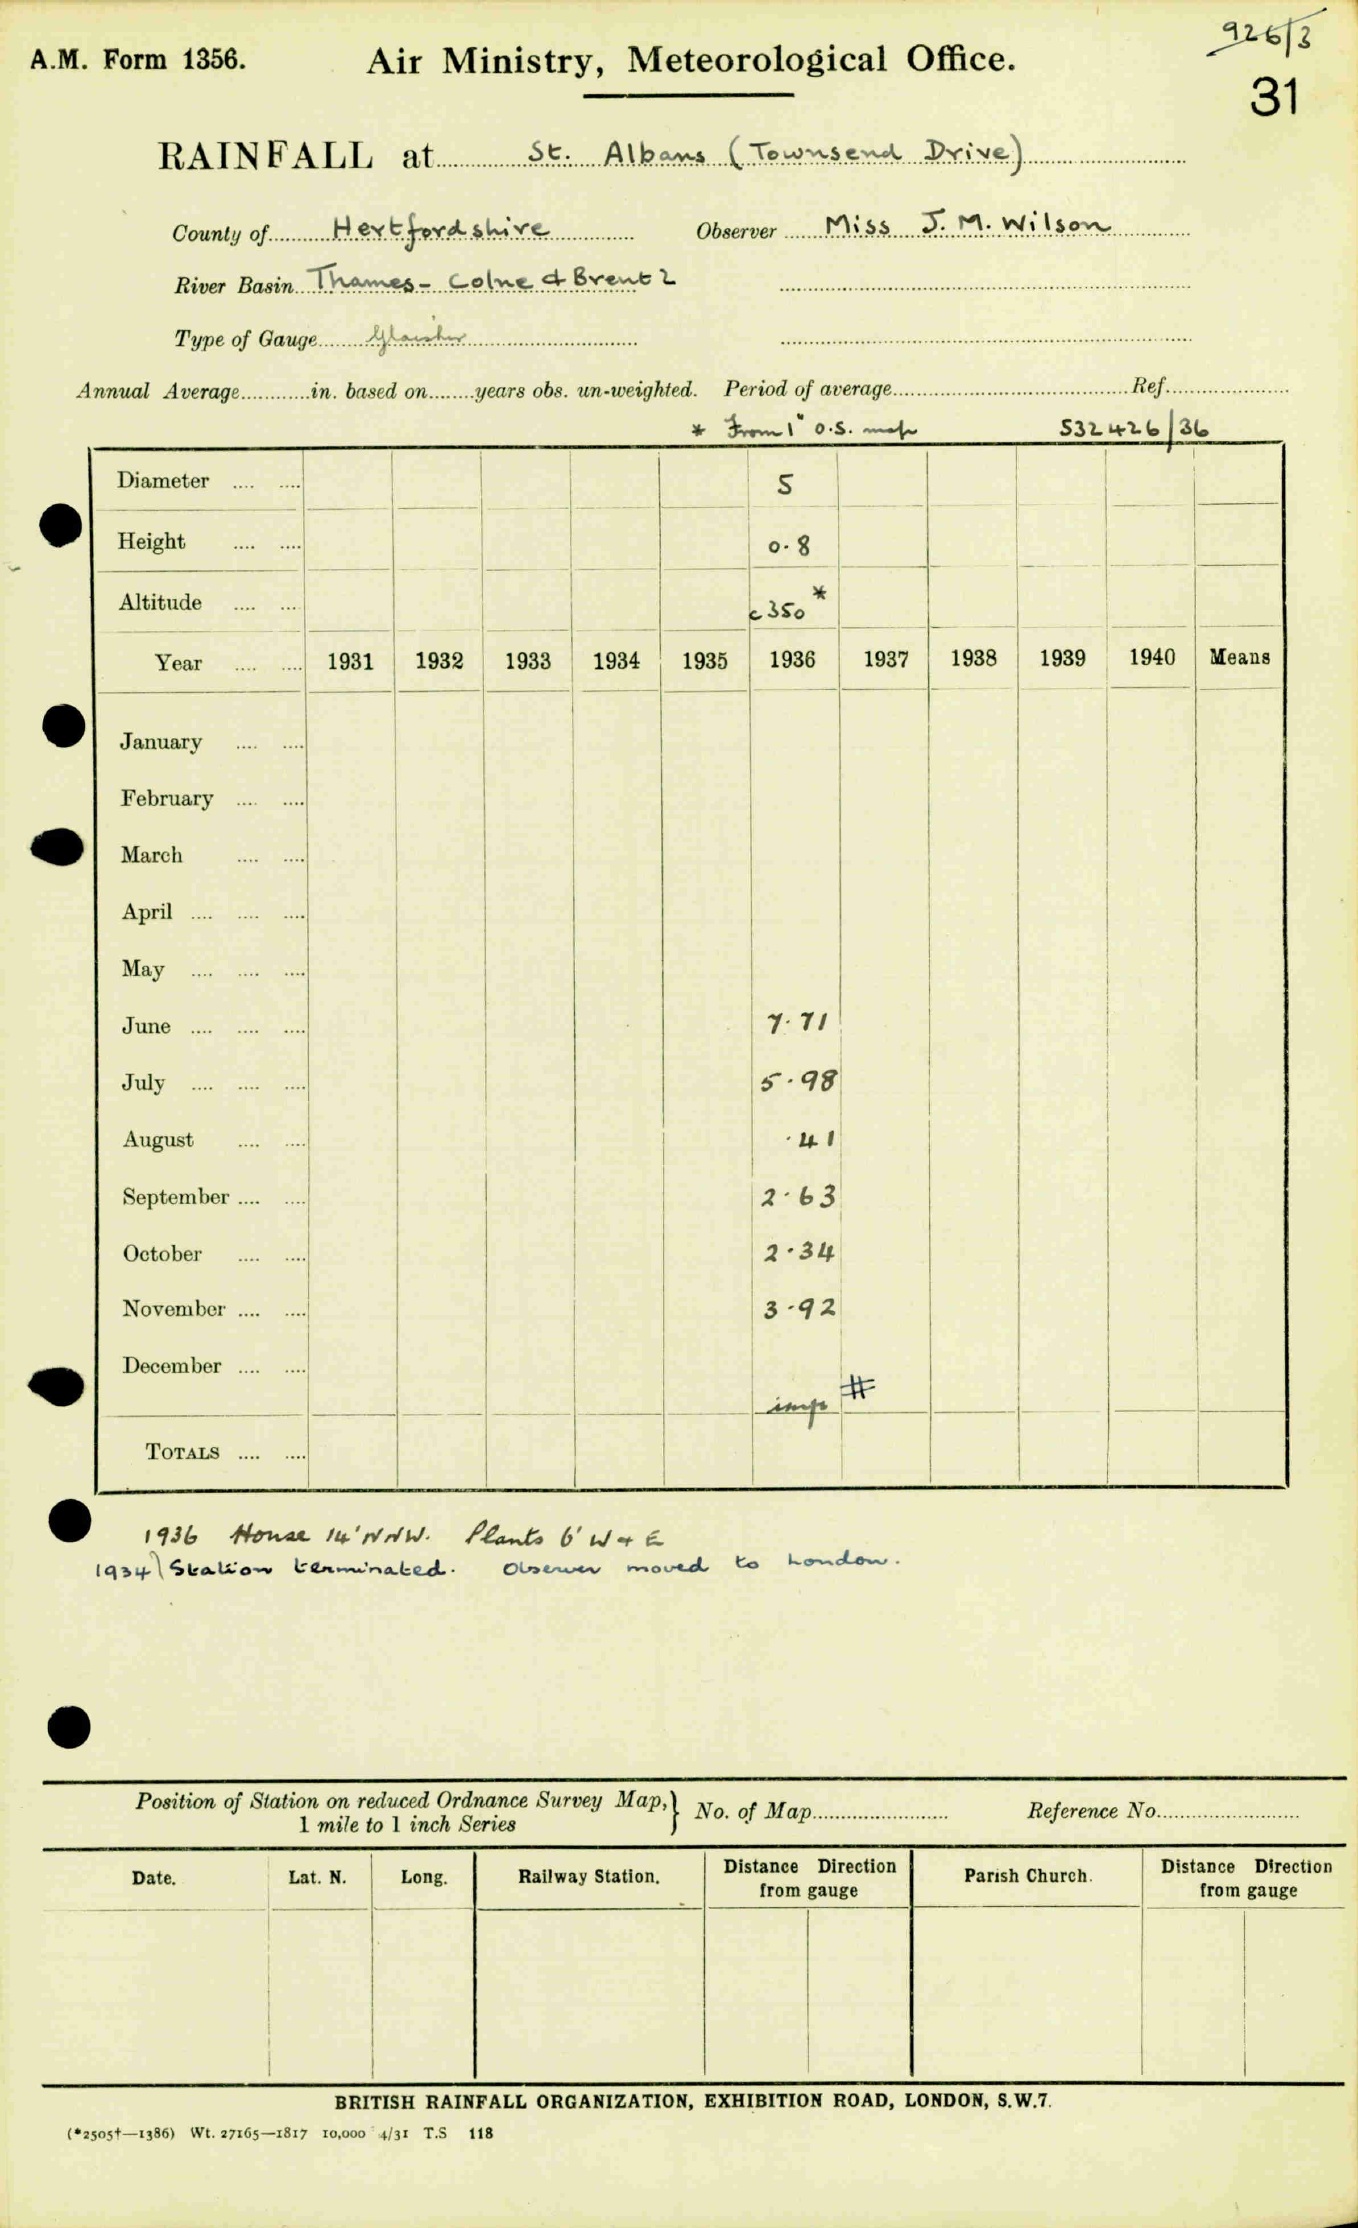 926/3
A.M. Form 1356. Air Ministry, Meteorological Office.
31
RAINFALL at St. Albans (Townsend Drive)
County of Hertfordshire Observer Miss J. M. Wilson
River Basin Thames - Colne & Brent 2
Type of Gauge Glaisher
Annual Average in. based on years obs. un-weighted. Period of average Ref.
* From 1" O.S. map 532426/36
Diameter .... .... 5
Height .... .... 0.8
Altitude .... .... c350*
Year .... .... 1931 1932 1933 1934 1935 1936 1937 1938 1939 1940 Means
January .... ....
February .... ....
March .... ....
April .... .... ....
May .... .... ....
June .... .... .... 7.71
July .... .... .... 5.98
August .... .... .41
September .... .... 2.63
October .... .... 2.34
November .... .... 3.92
December .... ....
imp #
TOTALS .... ....
1936 House 14' NNW. Plants 6' W & E
1934) Station terminated. Observer moved to London.
Position of Station on reduced Ordnance Survey Map,} No. of Map Reference No.
1 mile to 1 inch Series
Date. Lat. N. Long. Railway Station. Distance Direction from gauge Parish Church. Distance Direction from gauge
BRITISH RAINFALL ORGANIZATION, EXHIBITION ROAD, LONDON, S.W.7.
(*2505†—1386) Wt. 27165—1817 10,000 4/31 T.S 118